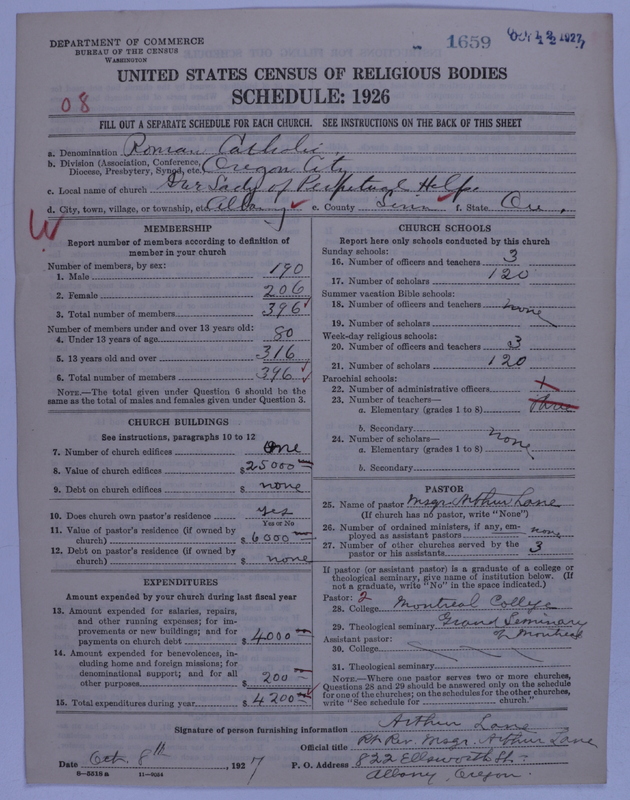 DEPARTMENT OF COMMERCE
BUREAU OF THE CENSUS
WASHINGTON
1659
OCT 12 1927
UNITED STATES CENSUS OF RELIGIOUS BODIES
SCHEDULE: 1926
08
FILL OUT A SEPARATE SCHEDULE FOR EACH CHURCH. SEE INSTRUCTIONS ON THE BACK OF THIS SHEET
a. Denomination Roman Catholic
b. Division (Association, Conference, Diocese, Presbytery, Synod, etc.) Oregon City
c. Local name of church Our Lady of Perpetual Help
d. City, town, village, or township, etc. Albany e. County Linn f. State Ore.
W
MEMBERSHIP
Report number of members according to definition of
member in your church
Number of members, by sex:
1. Male 190
2. Female 206
3. Total number of members 396
Number of members under and over 13 years old:
4. Under 13 years of age 80
5. 13 years old and over 316
6. Total number of members 396
NOTE.—The total given under Question 6 should be
same as the total of males and females given under Question 3.
CHURCH BUILDINGS
See instructions, paragraphs 10 to 12
7. Number of church edifices one
8. Value of church edifices $ 25000
9. Debt on church edifices $ none
10. Does church own pastor's residence yes
Yes or No
11. Value of pastor's residence (if owned by
church) $ 6000
12. Debt on pastor's residence (if owned by
church) $ none
EXPENDITURES
Amount expended by your church during last fiscal year
13. Amount expended for salaries, repairs,
and other running expenses; for im-
provements or new buildings; and for
payments on church debt $ 4000
14. Amount expended for benevolences, in-
cluding home and foreign missions; for
denominational support; and for all
other purposes $ 200
15. Total expenditures during year $ 4200
CHURCH SCHOOLS
Report here only schools conducted by this church
Sunday schools:
16. Number of officers and teachers 3
17. Number of scholars 120
Summer vacation Bible schools:
18. Number of officers and teachers none
19. Number of scholars
Week-day religious schools:
20. Number of officers and teachers 3
21. Number of scholars 120
Parochial schools:
22. Number of administrative officers
23. Number of teachers—
a. Elementary (grades 1 to 8) three
b. Secondary
24. Number of scholars— none
a. Elementary (grades 1 to 8)
b. Secondary
PASTOR
25. Name of pastor Msgr. Arthur Lane
(If church has no pastor, write "None")
26. Number of ordained ministers, if any, em-
ployed as assistant pastors none
27. Number of other churches served by the
pastor or his assistants 3
If pastor (or assistant pastor) is a graduate of a college or
theological seminary, give name of institution below. (If
not a graduate, write "No" in the space indicated.)
Pastor: 2
28. College Montreal College
29. Theological seminary Grand Seminary
of Montreal
Assistant pastor:
30. College
31. Theological seminary
NOTE.—Where one pastor serves two or more churches,
Questions 28 and 29 should be answered only on the schedule
for one of the churches; on the schedules for the other churches,
write "See schedule for church."
Signature of person furnishing information Arthur Lane
Official title Rt. Rev. Msgr. Arthur Lane
Date Oct. 8th, 1927 P. O. Address 822 Ellsworth St.
Albany, Oregon.
6-5518a 11-9064